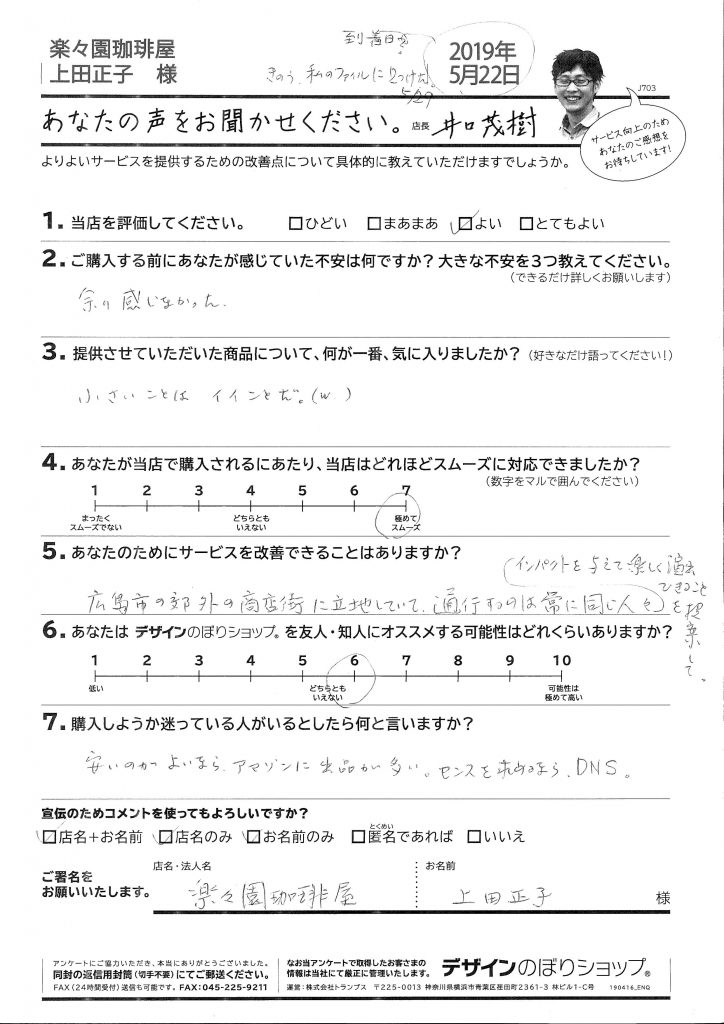 楽々園珈琲屋
上田正子 様
到着日から
きのう、私のファイルに見つけた。
5/29
2019年
5月22日
J703
あなたの声をお聞かせください。店長 井口茂樹
サービス向上のため
あなたのご感想を
お待ちしています!
よりよいサービスを提供するための改善点について具体的に教えていただけますでしょうか。
1. 当店を評価してください。 □ひどい □まあまあ ☑よい □とてもよい
2. ご購入する前にあなたが感じていた不安は何ですか?大きな不安を3つ教えてください。
(できるだけ詳しくお願いします)
余り感じなかった.
3. 提供させていただいた商品について、何が一番、気に入りましたか?(好きなだけ語ってください!)
小さいことは イイことだ。(w.)
4. あなたが当店で購入されるにあたり、当店はどれほどスムーズに対応できましたか?
(数字をマルで囲んでください)
1 2 3 4 5 6 7
まったく
スムーズでない
どちらとも
いえない
極めて
スムーズ
5. あなたのためにサービスを改善できることはありますか?
インパクトを与えて楽しく演出
できること
を提案して。
広島市の郊外の商店街に立地していて、通行するのは常に同じ人々
6. あなたは デザインのぼりショップ® を友人・知人にオススメする可能性はどれくらいありますか?
1 2 3 4 5 6 7 8 9 10
低い
どちらとも
いえない
可能性は
極めて高い
7. 購入しようか迷っている人がいるとしたら何と言いますか?
安いのがよいなら、アマゾンに出品が多い。センスを求めるなら、DNS。
宣伝のためコメントを使ってもよろしいですか?
☑店名+お名前 ☑店名のみ ☑お名前のみ □匿名であれば □いいえ
とくめい
ご署名を
お願いいたします。
店名・法人名
楽々園珈琲屋
お名前
上田正子 様
アンケートにご協力いただき、本当にありがとうございました。
同封の返信用封筒(切手不要)にてご郵送ください。
FAX(24時間受付)送信も可能です。FAX:045-225-9211
なお当アンケートで取得したお客さまの
情報は当社にて厳正に管理いたします。
デザインのぼりショップ®
運営:株式会社トランプス 〒225-0013 神奈川県横浜市青葉区荏田町2361-3 林ビル1-C号
190416_ENQ